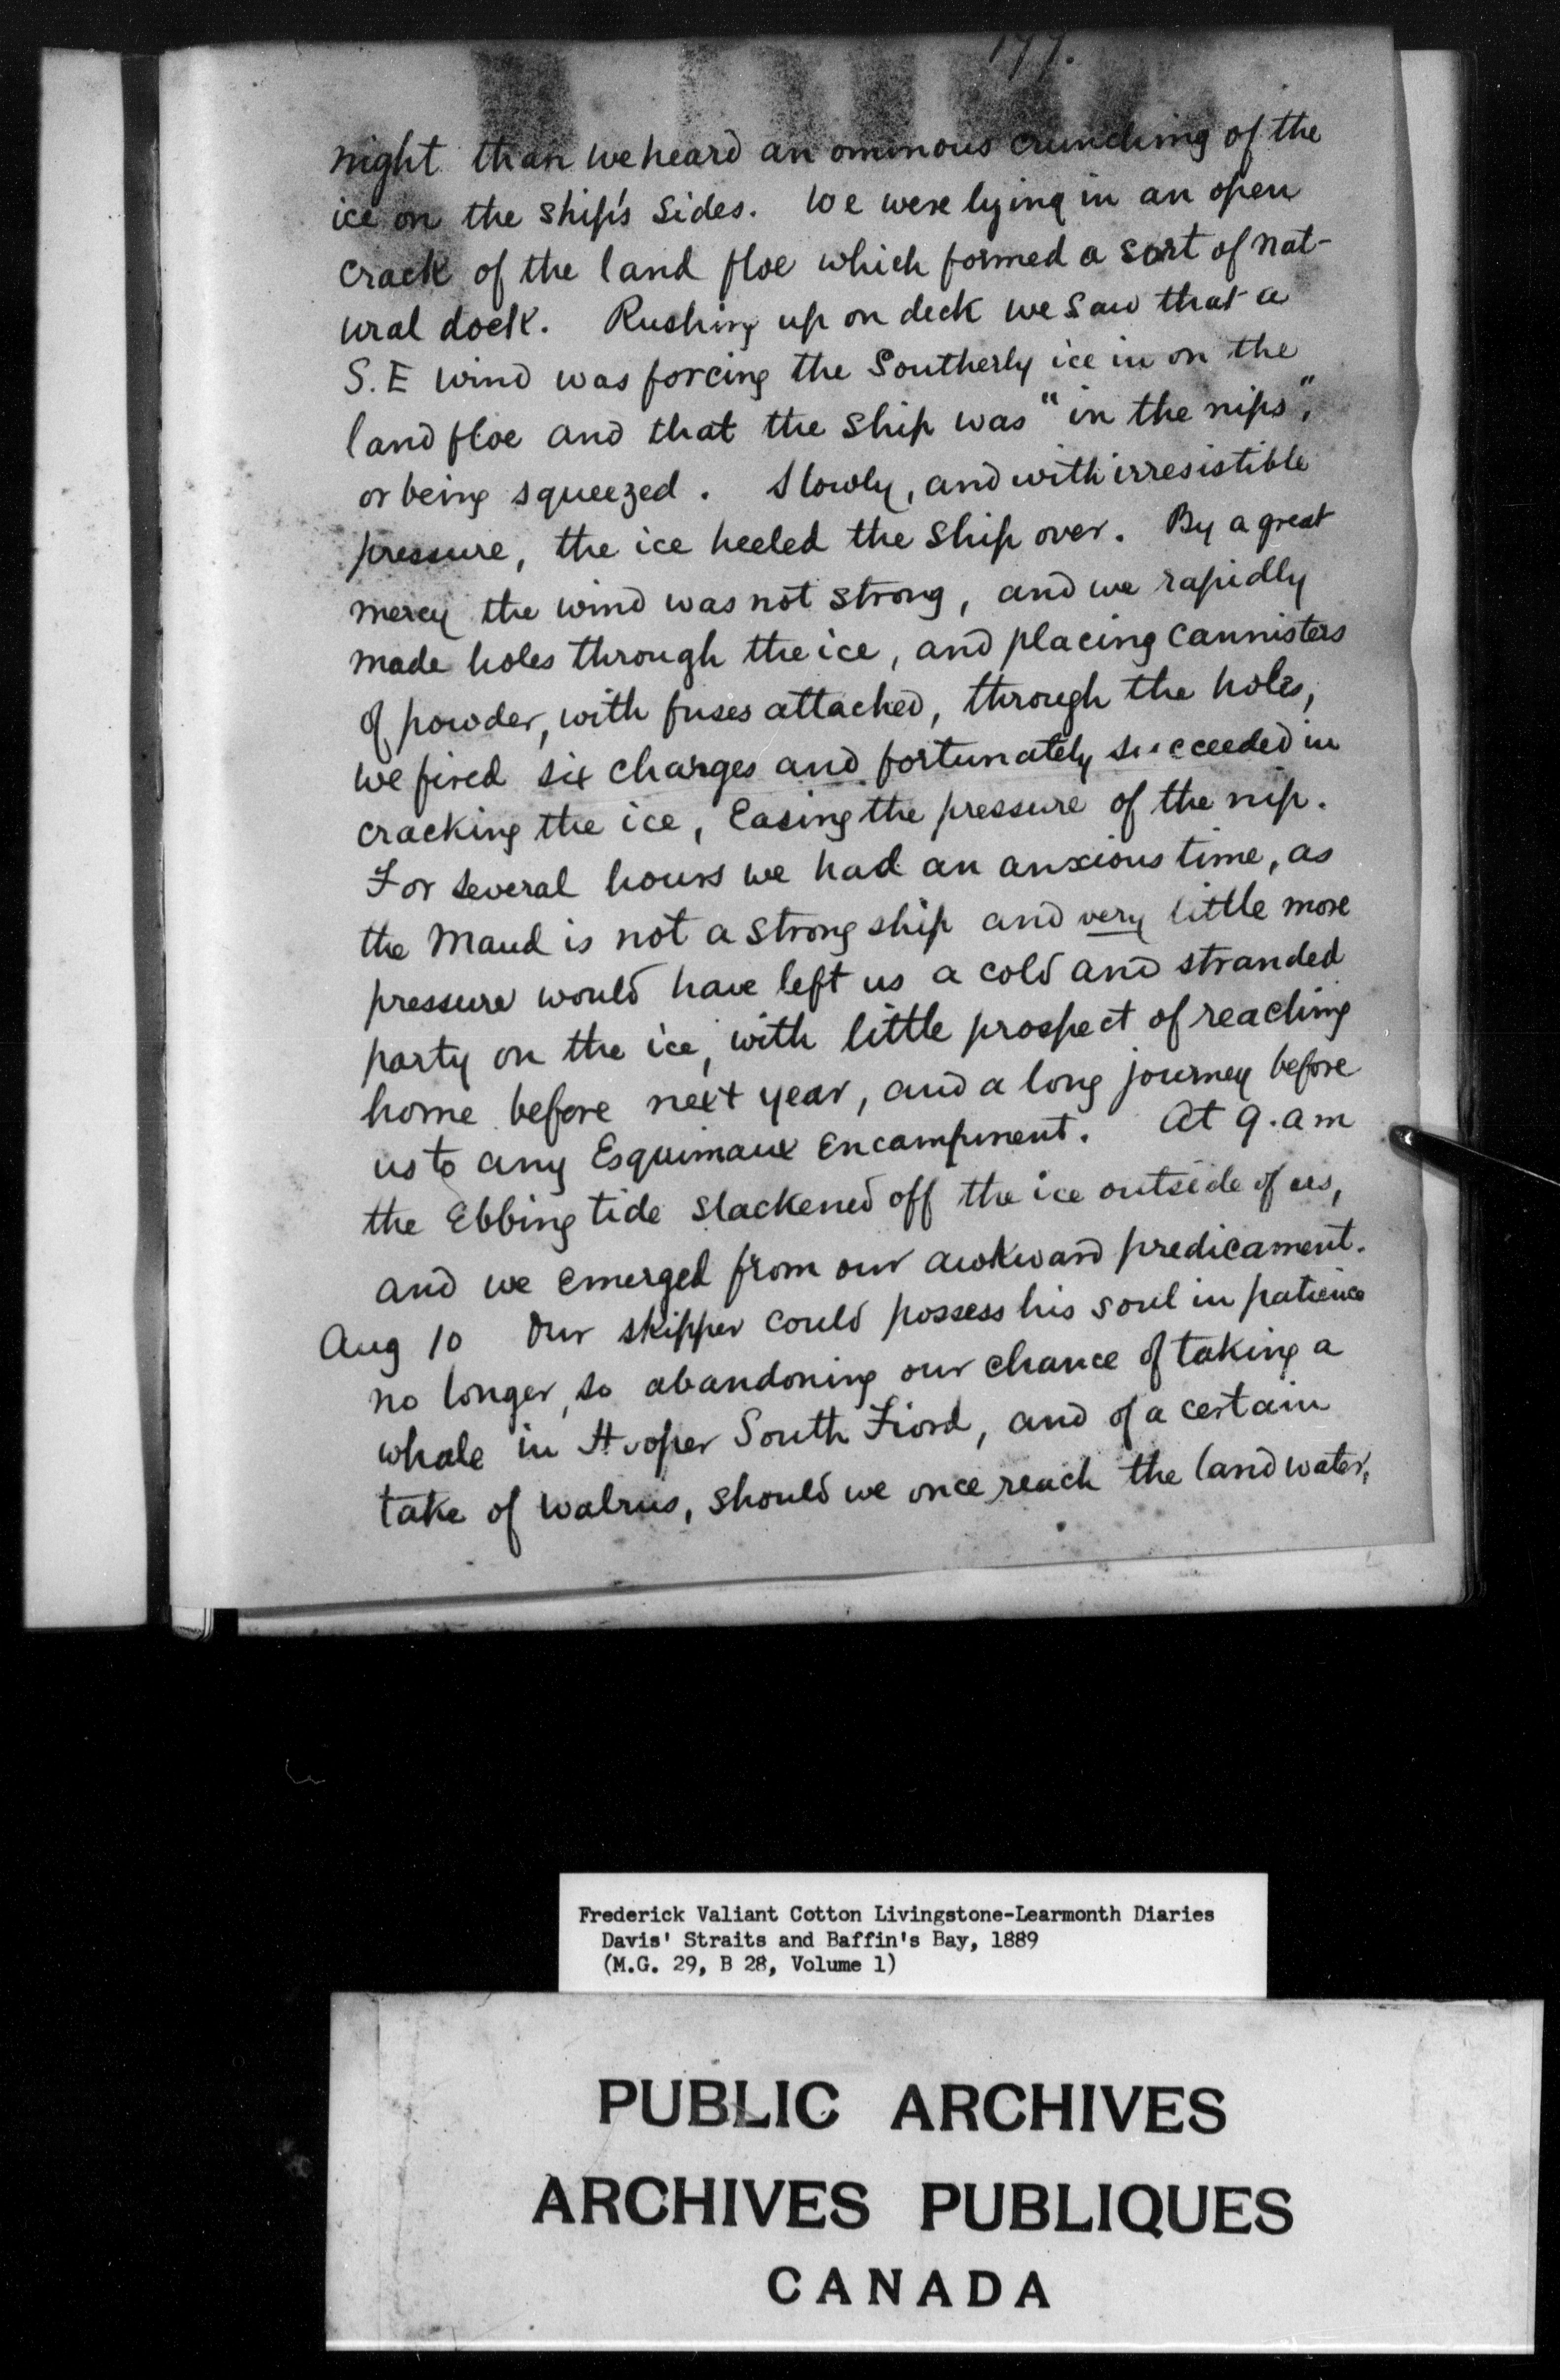 177.
night than we heard an ominous crunching of the
ice on the ship's sides. We were lying in an open
crack of the land floe which formed a sort of nat-
ural dock. Rushing up on deck we saw that a
S.E wind was forcing the Southerly ice in on the
land floe and that the ship was "in the nips",
or being squeezed. Slowly, and with irresistible
pressure, the ice heeled the ship over. By a great
mercy the wind was not strong, and we rapidly
made holes through the ice, and placing cannisters
of powder, with fuses attached, through the holes,
we fired six charges and fortunately succeeded in
cracking the ice, Easing the pressure of the nip.
For several hours we had an anxious time, as
the Maud is not a strong ship and very little more
pressure would have left us a cold and stranded
party on the ice, with little prospect of reaching
home before next year, and a long journey before
us to any Esquimaux Encampment. At 9.am
the Ebbing tide slackened off the ice outside of us,
and we emerged from our awkward predicament.
Aug 10 Our skipper could possess his soul in patience
no longer, so abandoning our chance of taking a
whale in Hooper South Fiord, and of a certain
take of walrus, should we once reach the land water,
Frederick Valiant Cotton Livingstone-Learmonth Diaries
Davis' Straits and Baffin's Bay, 1889
(M.G. 29, B 28, Volume 1)
PUBLIC ARCHIVES
ARCHIVES PUBLIQUES
CANADA